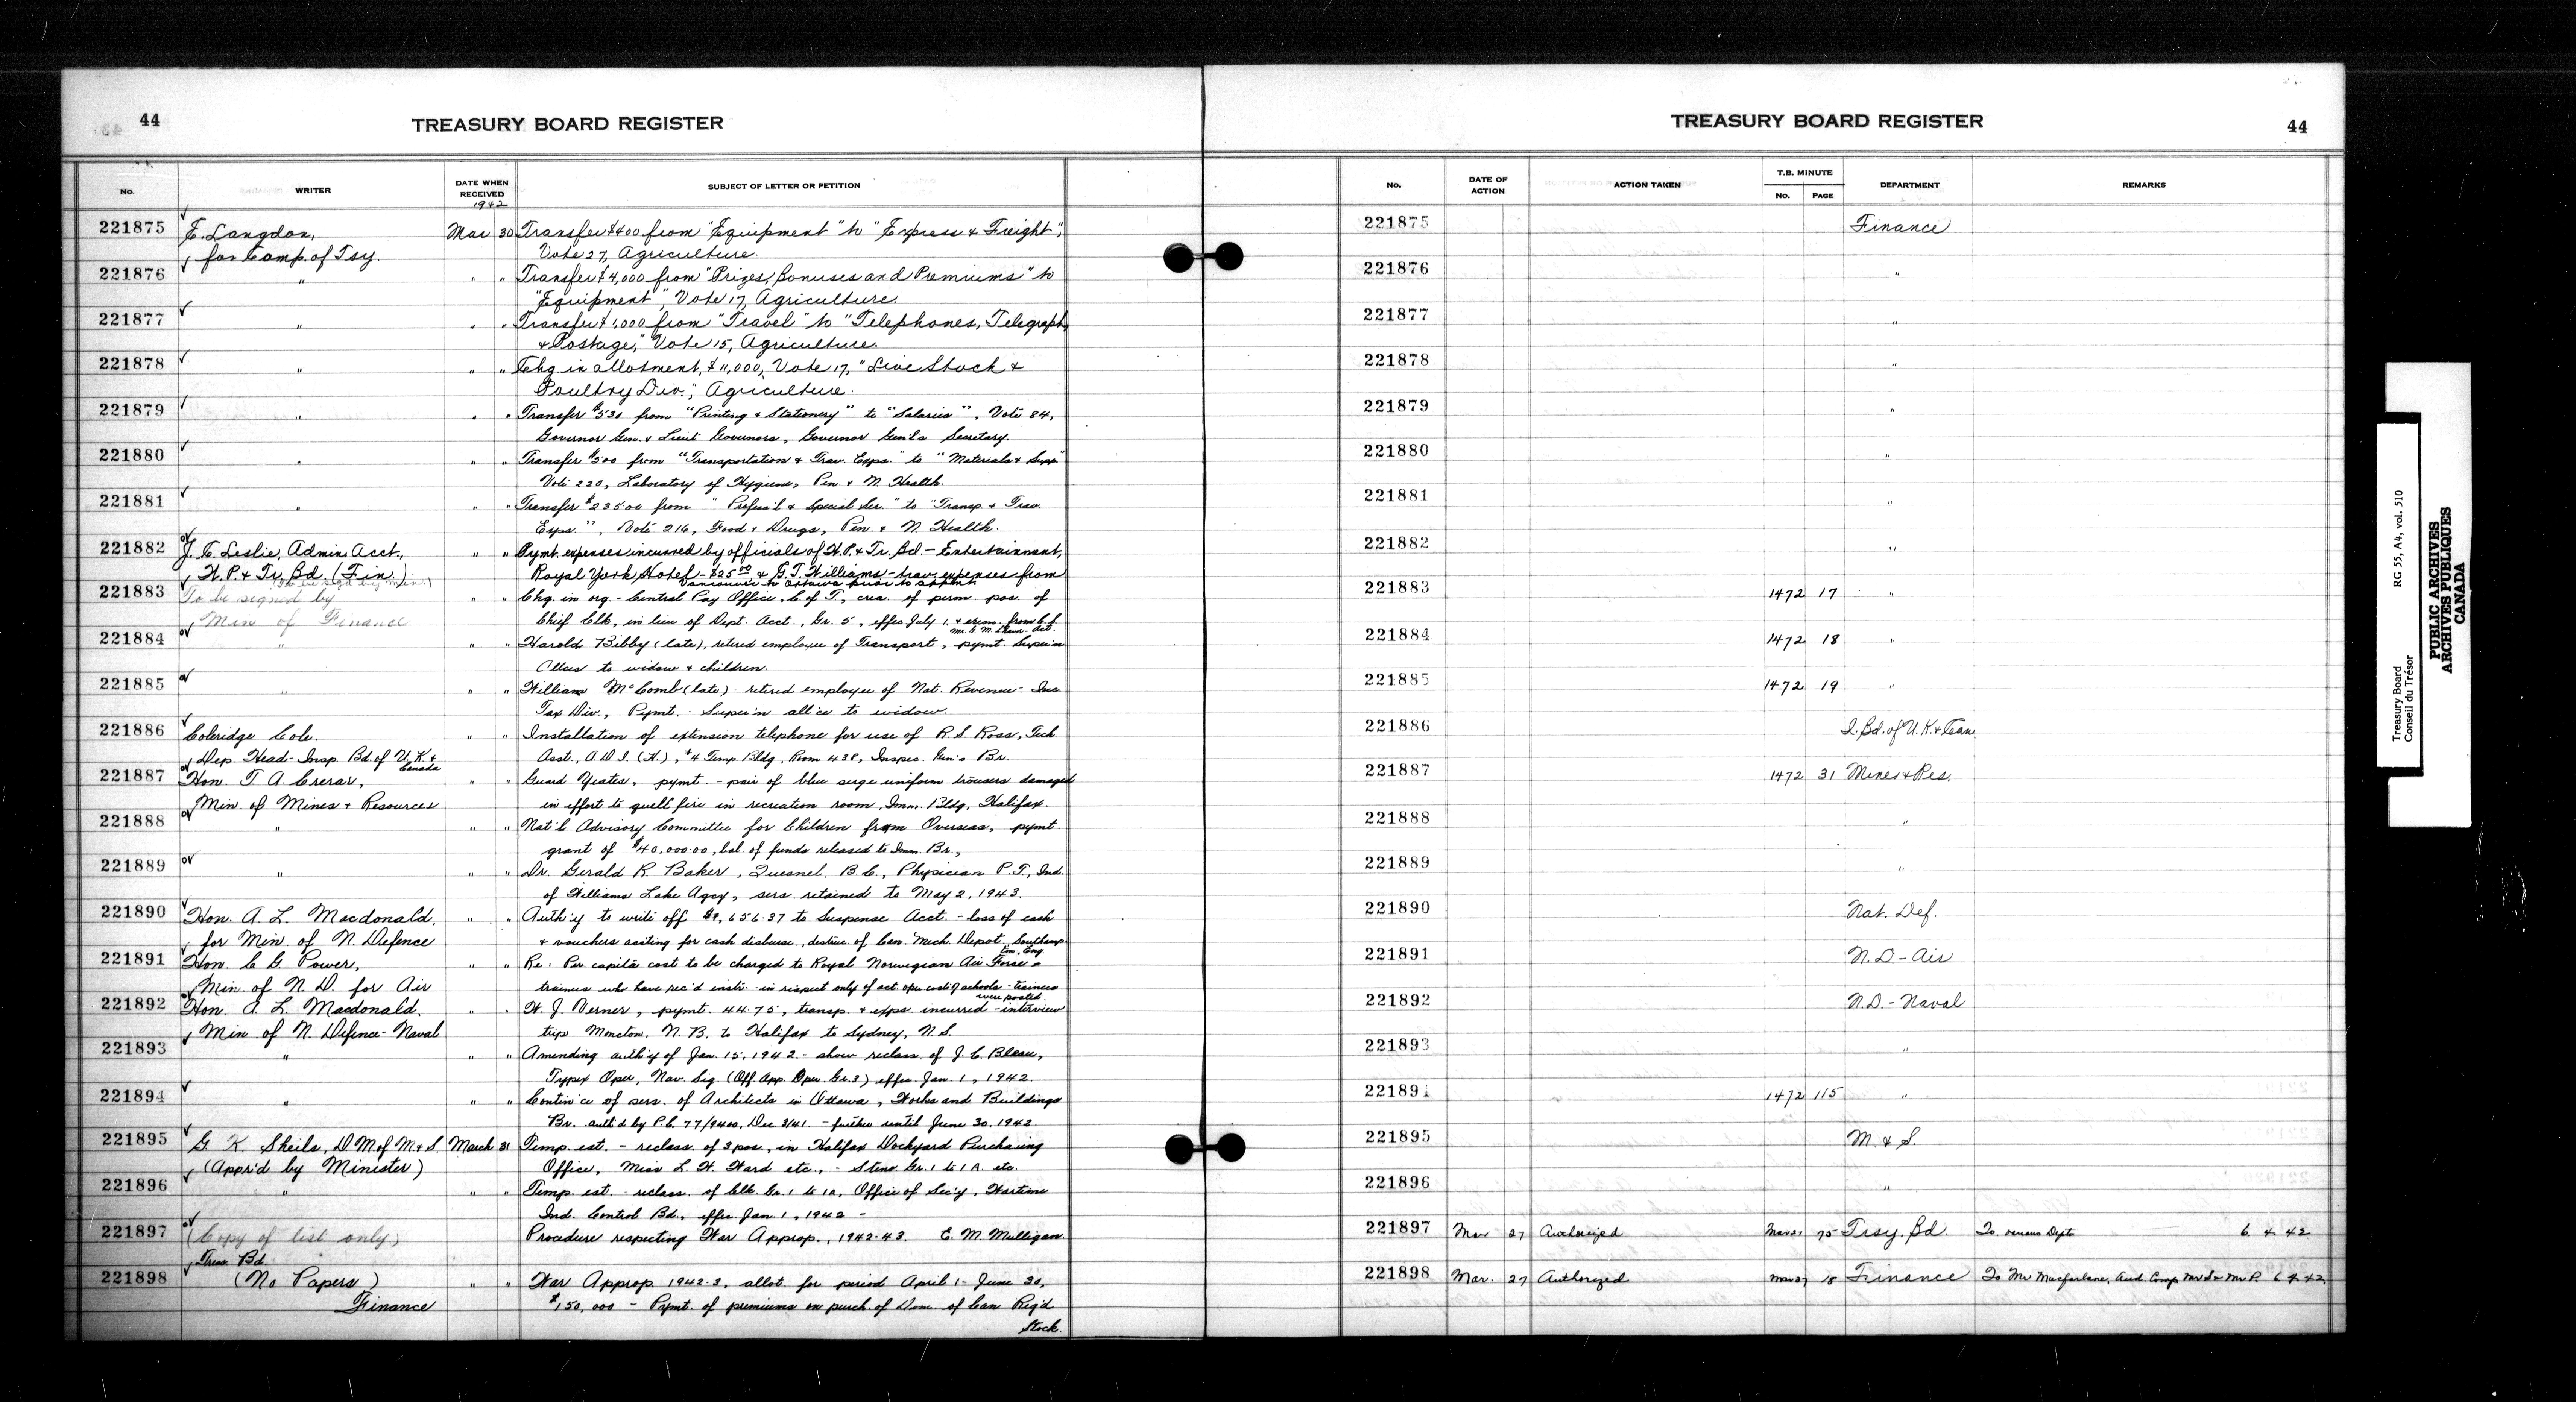 44
TREASURY BOARD REGISTER
No.
WRITER
DATE WHEN RECEIVED
1942
SUBJECT OF LETTER OR PETITION
221875
E. Langdon,
for Comp. of Tsy.
Mar 30
Transfer $400 from "Equipment" to "Express & Freight",
Vote 27, Agriculture.
221876
"
" "
Transfer $4,000 from "Prizes, Bonuses and Premiums" to
"Equipment", Vote 17, Agriculture.
221877
"
" "
Transfer $1,000 from "Travel" to "Telephones, Telegraph
& Postage," Vote 15, Agriculture.
221878
"
" "
Chg. in allotment, $11,000, Vote 17, "Live Stock &
Poultry Div.", Agriculture.
221879
"
" "
Transfer $530 from "Printing & Stationery" to "Salaries", Vote 84,
Governor Gen. & Lieut. Governors, Governor Gen'l's Secretary.
221880
"
" "
Transfer $500 from "Transportation & Trav. Exps." to "Materials & Supp"
Vote 220, Laboratory of Hygiene, Pen. & N. Health.
221881
"
" "
Transfer $235.00 from "Profess'l & Special Ser." to "Transp. & Trav.
Exps.", Vote 216, Food & Drugs, Pen. & N. Health.
221882
J. C. Leslie, Admin. Acct.,
W.P. & Tr. Bd. (Fin.)
" "
Pymt. expenses incurred by officials of W.P. & Tr. Bd. - Entertainment,
Royal York Hotel - $25.00 & G.T. Williams - trav. expenses from
Vancouver to Ottawa prior to appmt.
221883
To be signed by
Min of Finance
" "
Chg. in org. - Central Pay Office, C. of T., crea. of perm. pos. of
Chief Clk, in lieu of Dept. Acct., Gr. 5, effec July 1,
221884
"
" "
Harold Bibby (late), retired employee of Transport, pymt. Super'n
Allces to widow & children.
221885
"
" "
William McComb (late) - retired employee of Nat. Revenue - Inc.
Tax Div., Pymt. - Super'n all'ce to widow.
221886
Coleridge Cole.
Dep. Head - Insp. Bd. of U.K. &
Canada
" "
Installation of extension telephone for use of R.S. Ross, Tech.
Asst., A.D.I. (H.), #4 Temp. Bldg, Room 438, Inspec. Gen's Br.
221887
Hon. T. A. Crerar,
Min. of Mines & Resources
" "
Guard Yeates, pymt. - pair of blue serge uniform trousers damaged
in effort to quell fire in recreation room, Imm. Bldg, Halifax.
221888
"
" "
Nat'l Advisory Committee for Children from Overseas, pymt.
grant of $40,000.00, bal. of funds released to Imm. Br.,
221889
"
" "
Dr. Gerald R. Baker, Quesnel, B.C., Physician P.T., Ind.
of Williams Lake Agcy, sers. retained to May 2, 1943.
221890
Hon. A. L. Macdonald,
for Min. of N. Defence
" "
Auth'y to write off $9,656.37 to Suspense Acct. - loss of cash
& vouchers acting for cash disburse., destruc. of Can. Mech. Depot, Southamp-
ton, Eng.
221891
Hon. C. G. Power,
Min. of N. D. for Air
" "
Re: Per capita cost to be charged to Royal Norwegian Air Force -
trainees who have rec'd instr. - in respect only of act. oper. cost of schools - trainees
were posted.
221892
Hon. A. L. Macdonald.
Min. of N. Defence - Naval
" "
W. J. Verner, pymt. 44.75, transp. & exps. incurred - interview
trip Moncton, N.B. to Halifax to Sydney, N.S.
221893
"
" "
Amending auth'y of Jan. 15, 1942 - show reclass. of J. C. Bleau,
Typex Oper., Nav. Sig. (Off. App. Oper. Gr. 3) effec. Jan. 1, 1942.
221894
"
" "
Contin'ce of sers. of Architects in Ottawa, Works and Buildings
Br. auth'd by P.C. 77/9400, Dec 3/41. - further until June 30, 1942.
221895
G. K. Sheils, D M of M & S.
(Appr'd by Minister)
March 31
Temp. est. - reclass. of 3 pos., in Halifax Dockyard Purchasing
Office, Miss L. H. Ward etc., - Steno. Gr. 1 to 1A. etc.
221896
"
" "
Temp. est. - reclass. of Clk. Gr. 1 to 1A, Office of Sec'y, Wartime
Ind. Control Bd., effec Jan. 1, 1942 -
221897
(Copy of list only)
Treas. Bd.
Procedure respecting War Approp., 1942-43. E. M. Mulligan.
221898
(No Papers)
Finance
" "
War Approp. 1942-3, allot. for period April 1 - June 30,
$150,000 - Pymt. of premiums on purch. of Dom. of Can. Reg'd
Stock.
TREASURY BOARD REGISTER
44
No.
DATE OF ACTION
ACTION TAKEN
T.B. MINUTE
No. PAGE
DEPARTMENT
REMARKS
221875 Finance
221876 "
221877 "
221878 "
221879 "
221880 "
221881 "
221882 "
221883 1472 17 "
221884 1472 18 "
221885 1472 19 "
221886 I. Bd. of U.K. & Can.
221887 1472 31 Mines & Res.
221888 "
221889 "
221890 Nat. Def.
221891 N.D. - Air
221892 N.D. - Naval
221893 "
221894 1472 115 "
221895 M. & S.
221896 "
221897 Mar 27 Authorized Mar 27 75 Trsy. Bd. To various Depts 6 4 42
221898 Mar. 27 Authorized Mar 27 18 Finance To Mr Macfarlane, Aud. Comp. 6 4 42
Treasury Board
Conseil du Trésor
RG 55, A4, vol. 510
PUBLIC ARCHIVES
ARCHIVES PUBLIQUES
CANADA